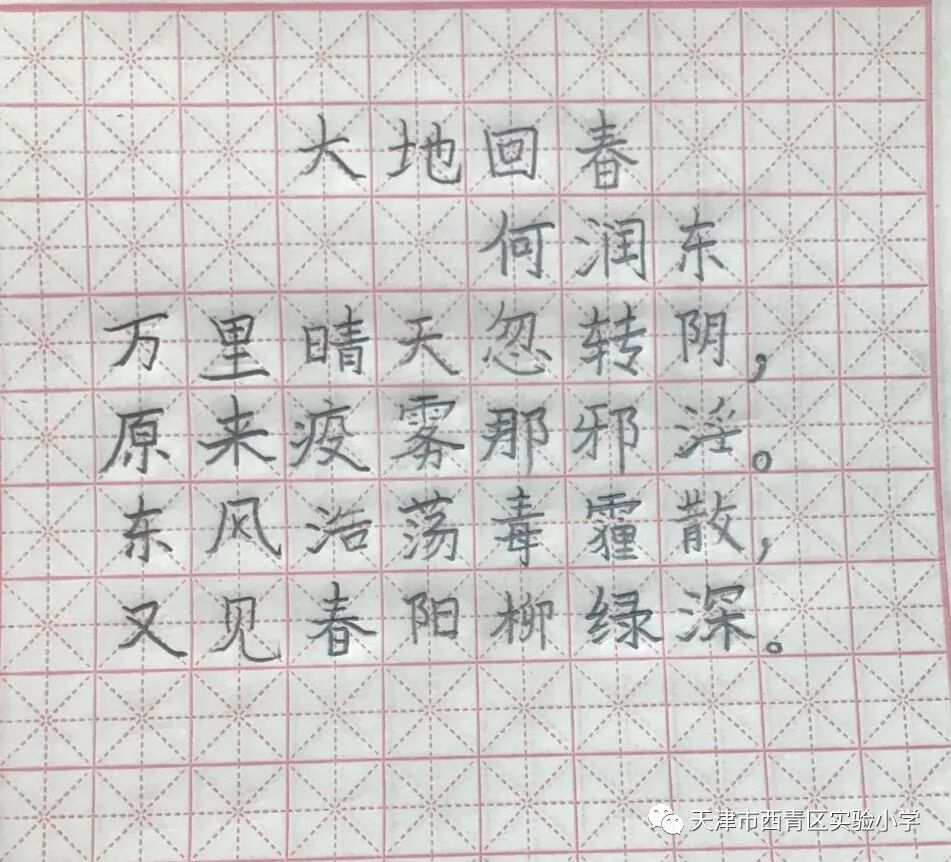 大地回春
何润东
万里晴天忽转阴，
原来疫雾那邪淫。
东风浩荡毒霾散，
又见春阳柳绿深。
天津市西青区实验小学